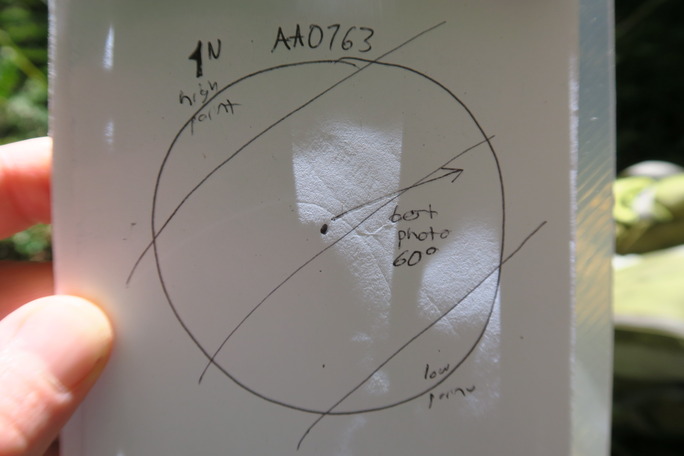 N
AA0763
high
point
best
photo
60°
low
point